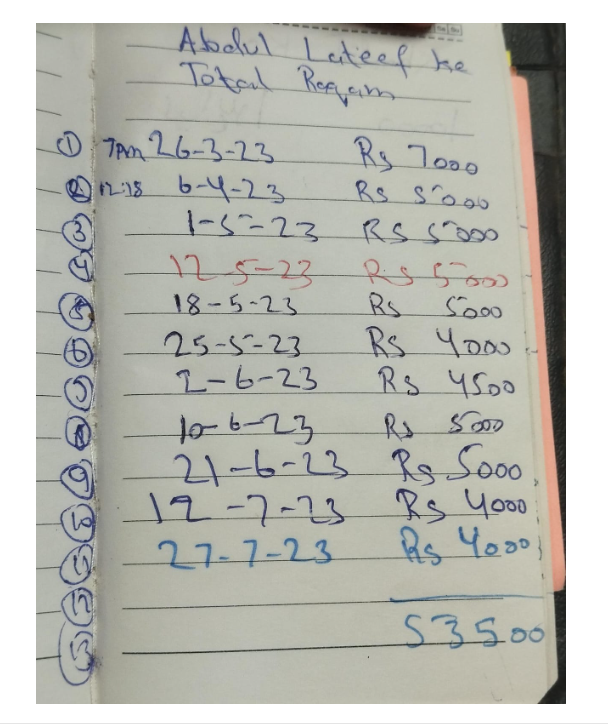 Abdul Lateef ke
Total Raqam
① 7Am 26-3-23 Rs 7000
② 12:18 6-4-23 Rs 5000
③ 1-5-23 Rs 5000
④ 12-5-23 Rs 5000
⑤ 18-5-23 Rs 5000
⑥ 25-5-23 Rs 4000
⑦ 2-6-23 Rs 4500
⑧ 10-6-23 Rs 5000
⑨ 21-6-23 Rs 5000
⑩ 12-7-23 Rs 4000
⑪ 27-7-23 Rs 4000
⑫
⑬ 53500